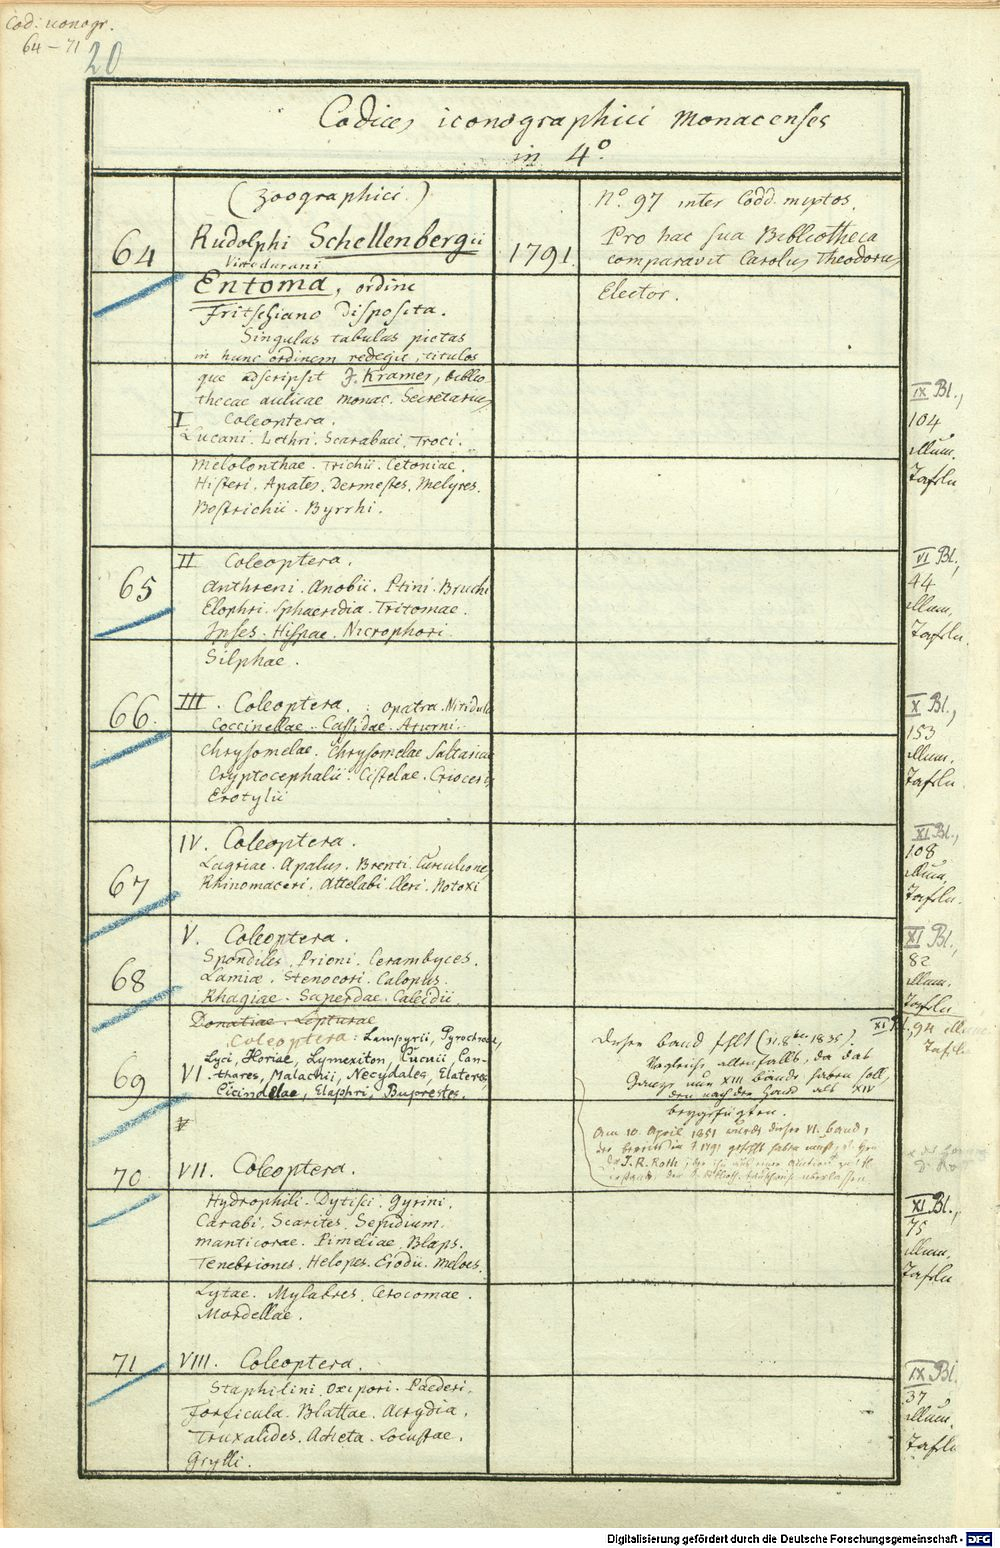 Cod: iconogr.
64 – 71
20
Codices iconographici monacenses
in 4º.
(Zoographici.)
64
Rudolphi Schellenbergii
Vitodurani
1791.
Nº 97 inter Codd. mſptos.
Pro hac ſua Bibliotheca
comparavit Carolus Theodorus
Elector.
Entoma, ordine
Fritſchiano diſpoſita.
Singulas tabulas pictas
in hunc ordinem redegit, titulos
que adſcripſit J. Kramer, biblio-
thecae aulicae monac. Secretarius
I Coleoptera.
Lucani. Lethri. Scarabaei. Troci.
Melolonthae. Trichii. Cetoniae.
Hiſteri. Apates. Dermeſtes. Melyres.
Boſtrichii. Byrrhi.
IX Bl.,
104
illum.
Tafeln
65
II Coleoptera.
Anthreni. Anobii. Ptini. Bruchi
Elophri. Sphaeridia. Tritomae.
Ipſes. Hiſpae. Nicrophori
Silphae.
VI Bl.,
44
illum.
Tafeln.
66.
III. Coleoptera. : Opatra. Nitidulae
Coccinellae. Caſſidae. Aturni.
Chryſomelae. Chryſomelae Saltatriae
Cryptocephalii. Ciſtelae. Crioceris
Erotylii
X Bl.,
153
illum.
Tafeln
67
IV. Coleoptera.
Lagriae. Apalus. Brenti. Curculiones
Rhinomaceri. Attelabi. Cleri. Notoxi
XI Bl.,
108
illum.
Tafeln.
68
V. Coleoptera.
Spondiles. Prioni. Cerambyces.
Lamiæ. Stenocori. Calopus.
Rhagiae. Saperdae. Caleidii
Donatiae. Lepturae
XI Bl.,
82
illum.
Tafeln
69
Coleoptera: Lampyrii, Pyrochroae,
Lyci, Horiae, Lymexiton, Cucuii, Can-
VI. thares, Malachii, Necydales, Elateres,
Cicindelae, Elaphri, Buprestes.
Dieser Band fehlt (11. 8ber 1835).
Vergleiche allenfalls, da das
Ganze nur XIII Bände haben soll,
den nach der Hand als XIV
beygefügten.
Am 10. April 1851 wurde dieser VI. Band,
der bereits im J. 1791 gefehlt haben muß,
Dr. J. R. Roth
94 illum.
Tafeln
70
VII. Coleoptera.
Hydrophili. Dytiſci. Gyrini.
Carabi. Scarites. Sepidium.
Manticorae. Pimeliae. Blaps.
Tenebriones. Helopes. Erodii. Meloes.
Lytae. Mylabres. Cerocomae.
Mordellae.
XI Bl.,
75
illum.
Tafeln
71
VIII. Coleoptera.
Staphilini. Oxipori. Paederi.
Forficula. Blattae. Acrydia.
Truxalides. Acheta. Locuſtae.
Grylli.
IX Bl.
37
illum.
Tafeln
Digitalisierung gefördert durch die Deutsche Forschungsgemeinschaft - DFG